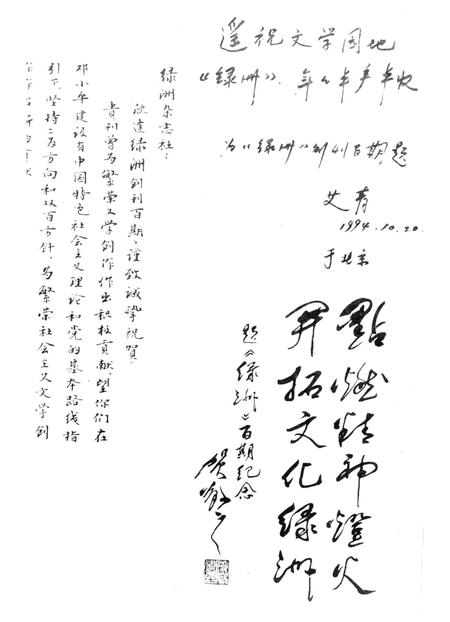 遥祝文学园地
《绿洲》、年々丰产丰收
为《绿洲》创刊百期题
艾青
1994.10.20.
于北京
點燃精神燈火
开拓文化绿洲
题《绿洲》百期纪念
贺敬之
绿洲杂志社：
欣逢绿洲创刊百期，谨致诚挚祝贺。
贵刊曾为繁荣文学创作作出积极贡献，望你们在
邓小平建设有中国特色社会主义理论和党的基本路线指
引下，坚持二为方向和双百方针，为繁荣社会主义文学创